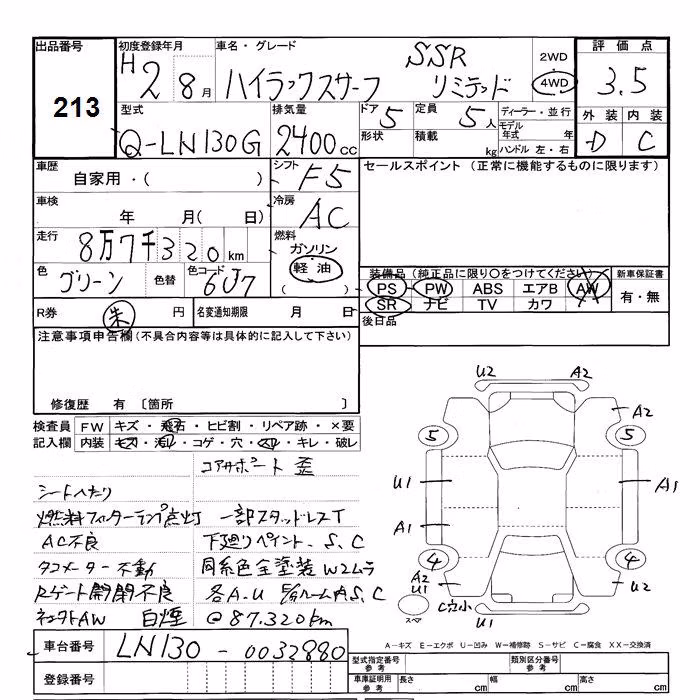 出品番号 初度登録年月 車名・グレード 評価点
213
H2 8月 ハイラックスサーフ SSR リミテッド 2WD 4WD 3.5
型式 排気量 ドア 5 定員 5人 ディーラー・並行 外装 内装
Q-LN130G 2400cc 形状 積載 kg モデル年式 年 D C
ハンドル 左・右
車歴 シフト F5 セールスポイント (正常に機能するものに限ります)
自家用・( )
車検 冷房 AC
年 月( 日)
走行 8万7千320km 燃料 ガソリン
軽油
( )
色 グリーン 色替 色コード 6J7
装備品 (純正品に限り○をつけてください) 新車保証書
PS PW ABS エアB AW 有・無
SR ナビ TV カワ
後日品
R券 朱 円 名変通知期限 月 日
注意事項申告欄(不具合内容等は具体的に記入して下さい)
修復歴 有 〔箇所 〕
検査員 FW キズ・飛石・ヒビ割・リペア跡・×要
記入欄 内装 キズ・汚レ・コゲ・穴・スレ・キレ・破レ
コアサポート 歪
シートヘタリ
燃料フィルターランプ点灯 一部スタッドレスT
AC不良 下廻りペイント、S、C
タコメーター不動 同系色全塗装W2ムラ
Rゲート開閉不良 各A.U 内S,C
AW 白煙 @87.320km
U2 A2
A2
5 5
U1 A1
A1
4 4
A2
U1 U2
スペア C穴小 U1
A-キズ E-エクボ U-凹み W-補修跡 S-サビ C-腐食 XX-交換済
車台番号 LN130-0032880
登録番号
型式指定番号 参考 類別区分番号 参考
車庫証明用 参考 長さ cm 幅 cm 高さ cm